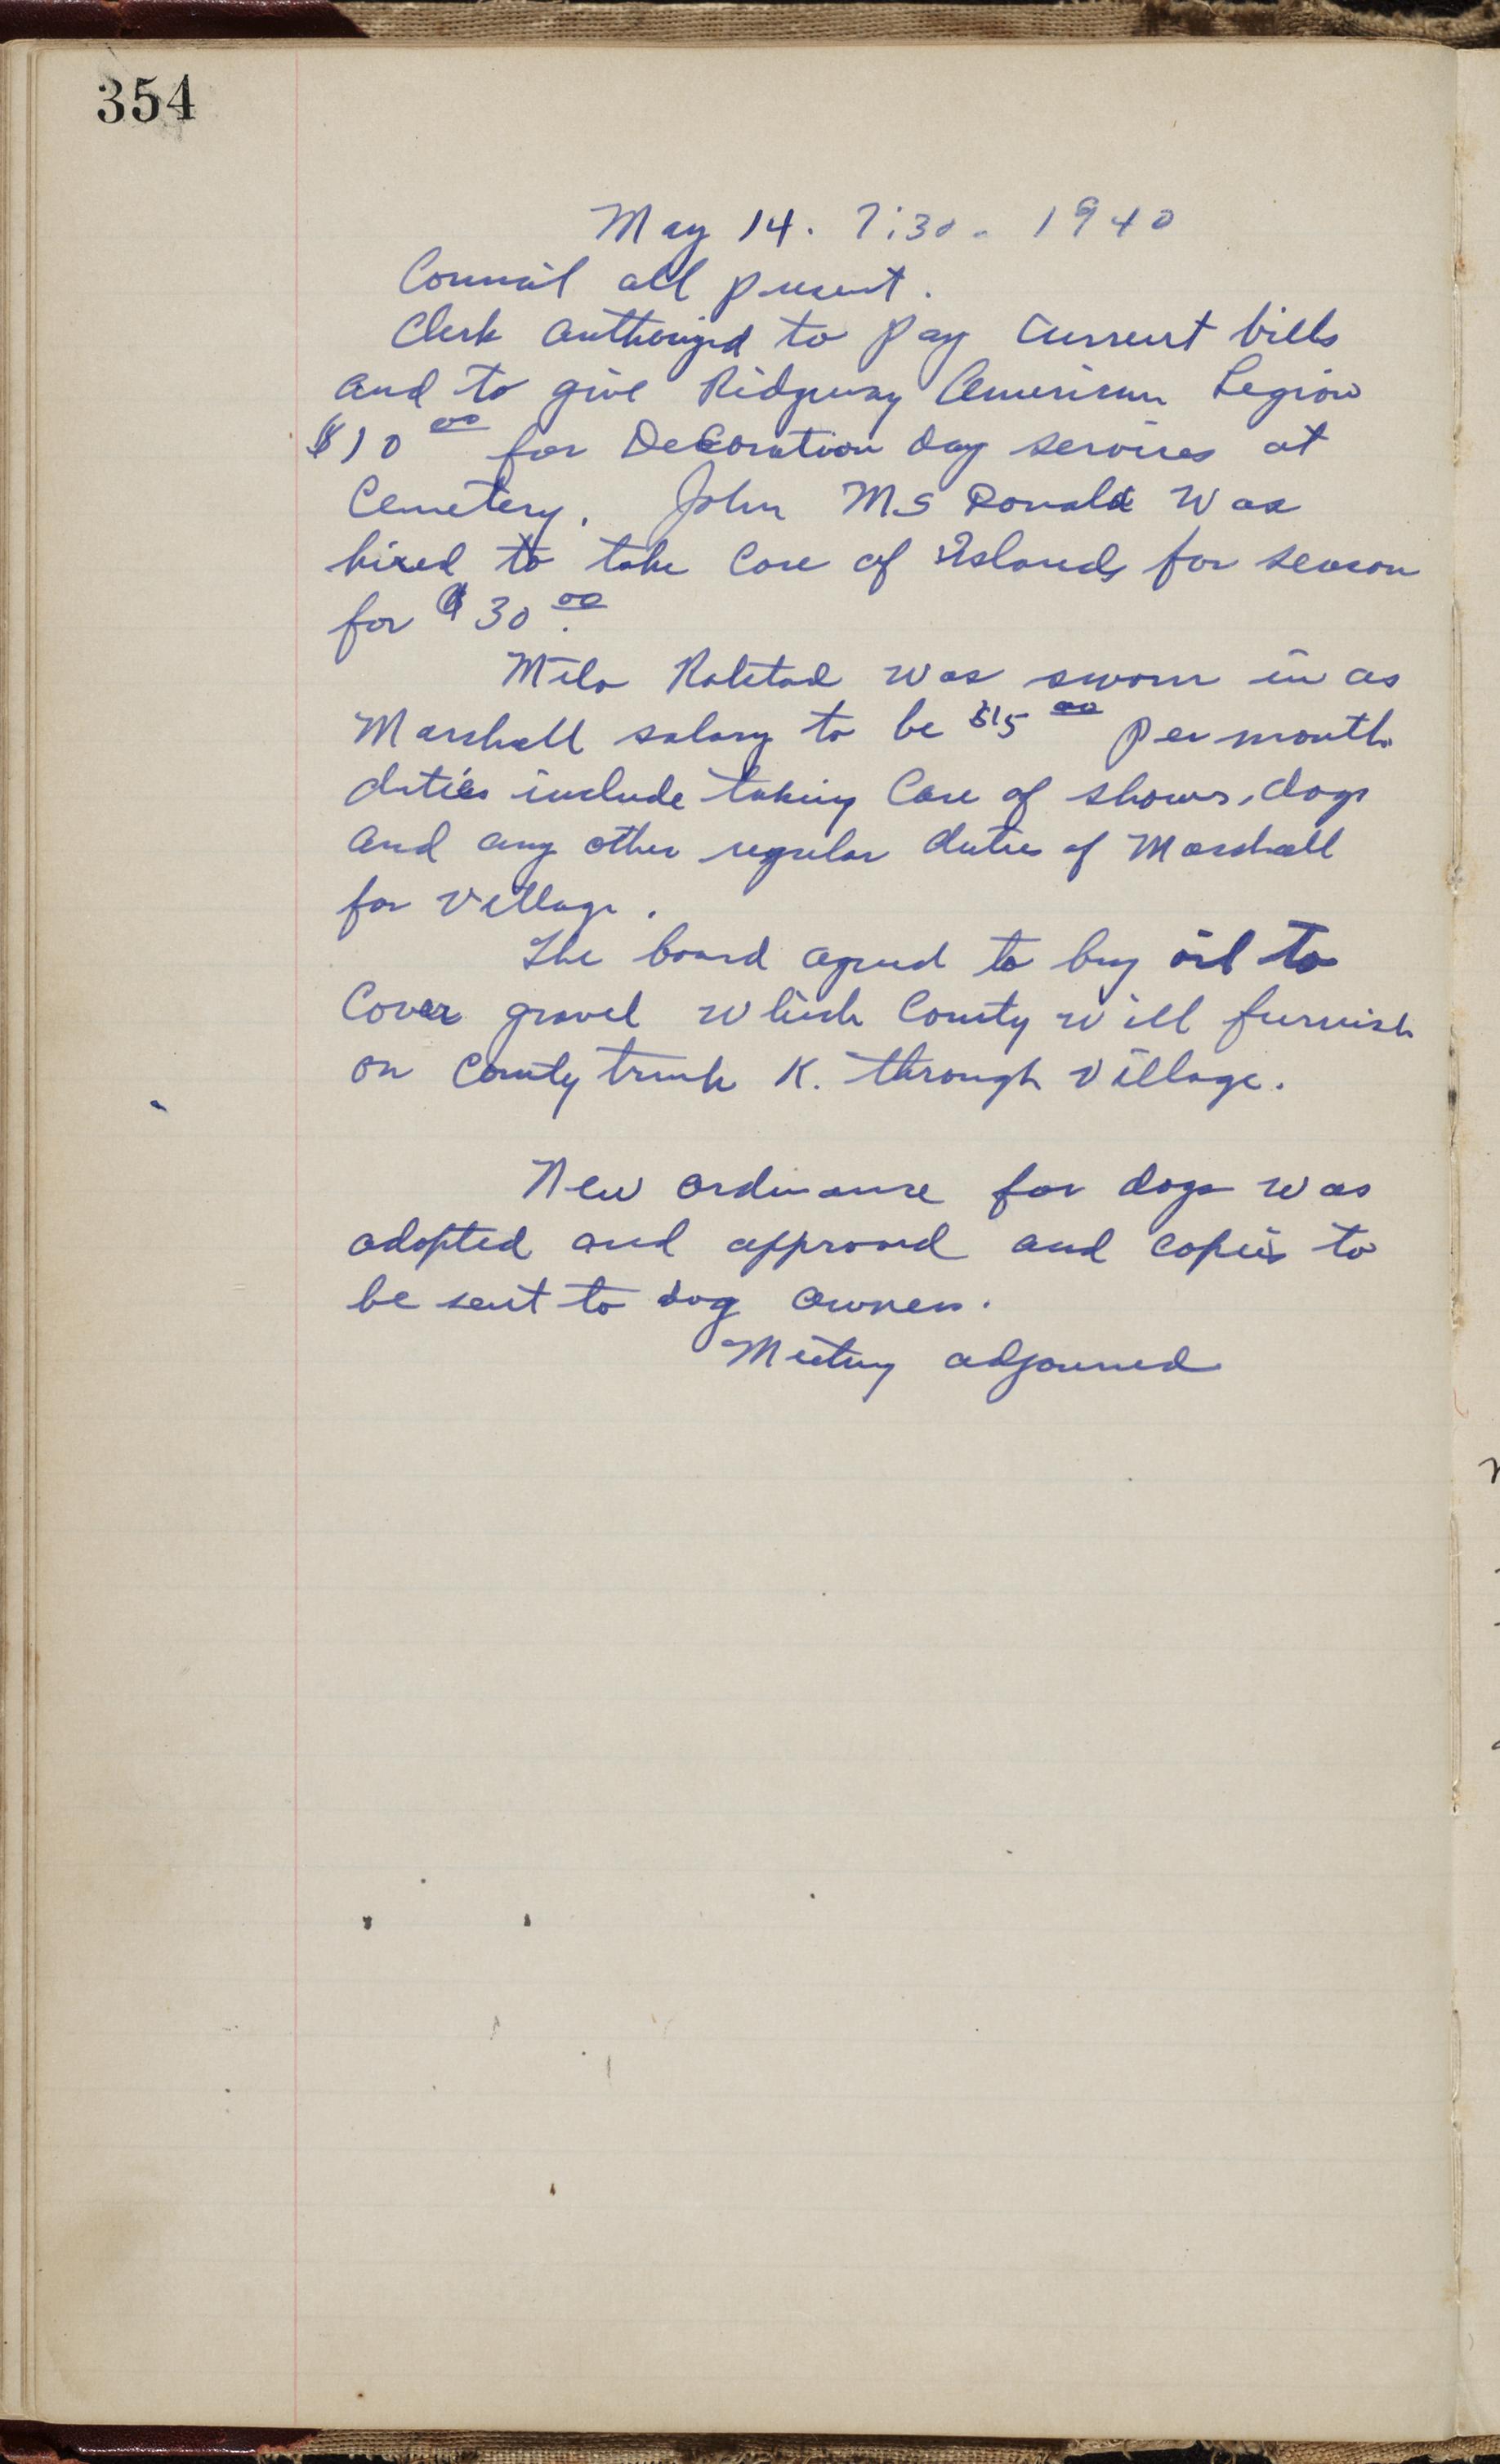 354
May 14. 7:30. 1940
Council all present.
Clerk authorized to pay current bills
and to give Ridgeway American Legion
$10 00 for Decoration day services at
Cemetery. John Mc Donald was
hired to take care of Islands for season
for $30 00.
Milo Rolstad was sworn in as
Marshall salary to be $15 00 per month
duties include taking care of shows, dogs
and any other regular duties of Marshall
for village.
The board agreed to buy oil to
cover gravel which County will furnish
on County trunk K. through village.
New ordinance for dogs was
adopted and approved and copies to
be sent to dog owners.
Meeting adjourned